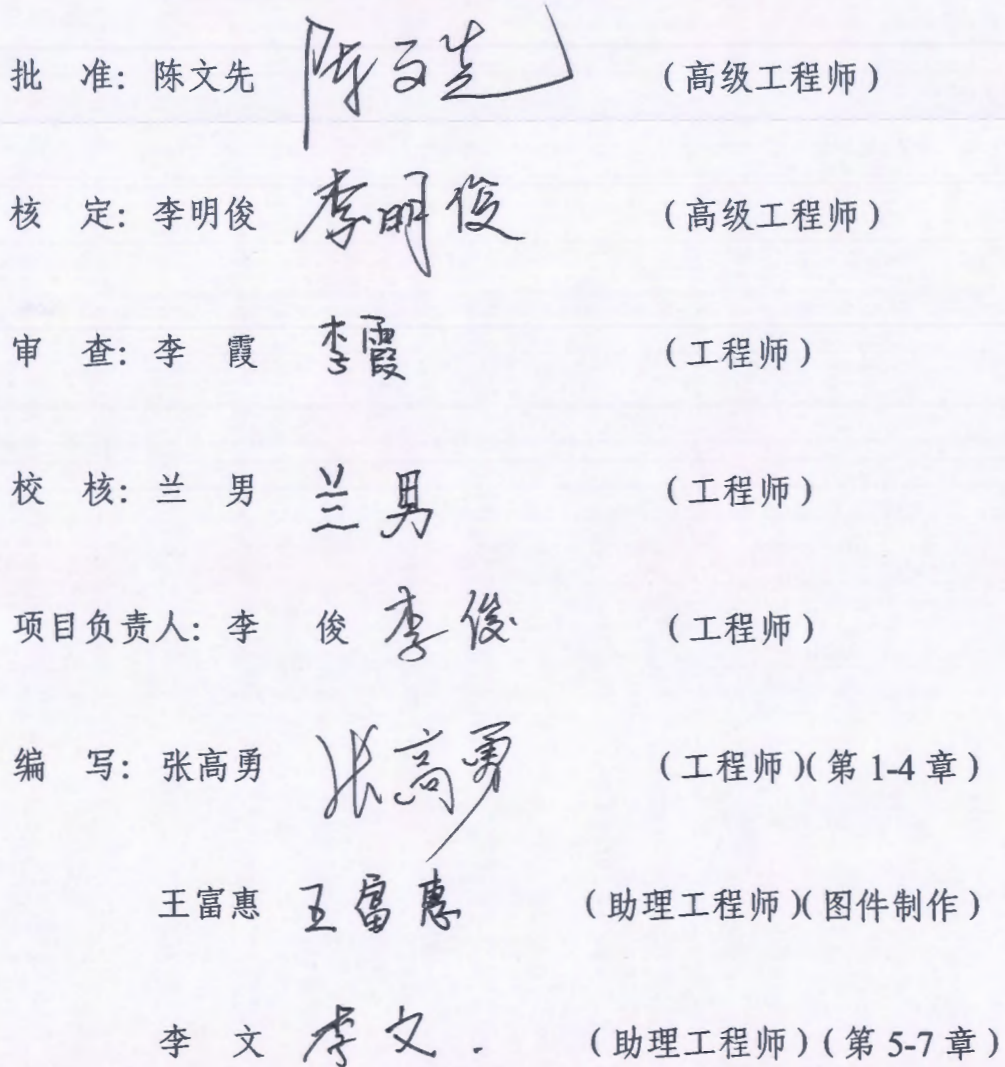 批　准：陈文先 陈文先 （高级工程师）
核　定：李明俊 李明俊 （高级工程师）
审　查：李　霞 李霞 （工程师）
校　核：兰　男 兰男 （工程师）
项目负责人：李　俊 李俊 （工程师）
编　写：张高勇 张高勇 （工程师）（第 1-4 章）
王富惠 王富惠 （助理工程师）（图件制作）
李　文 李文. （助理工程师）（第 5-7 章）